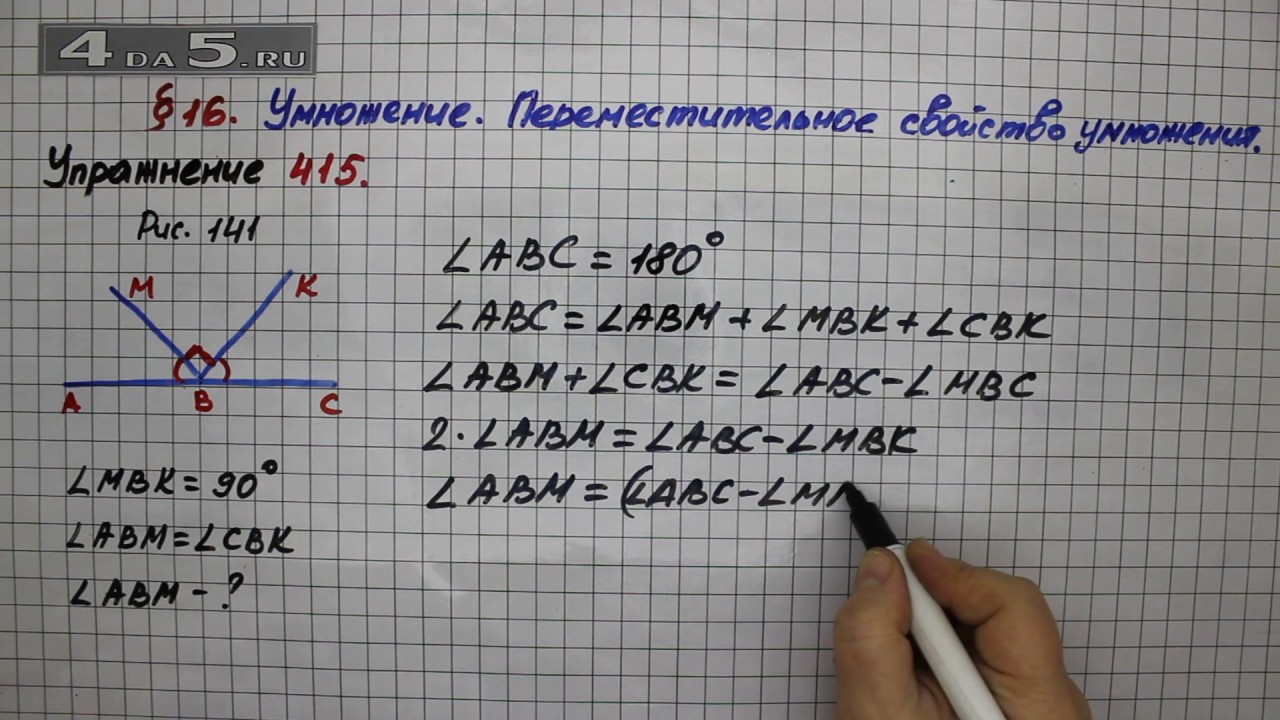 4DA5.RU
§16. Умножение. Переместительное свойство умножения.
Упражнение 415.
Рис. 141
M K
A B C
∠MBK = 90°
∠ABM = ∠CBK
∠ABM - ?
∠ABC = 180°
∠ABC = ∠ABM + ∠MBK + ∠CBK
∠ABM + ∠CBK = ∠ABC - ∠MBC
2 · ∠ABM = ∠ABC - ∠MBK
∠ABM = (∠ABC - ∠M